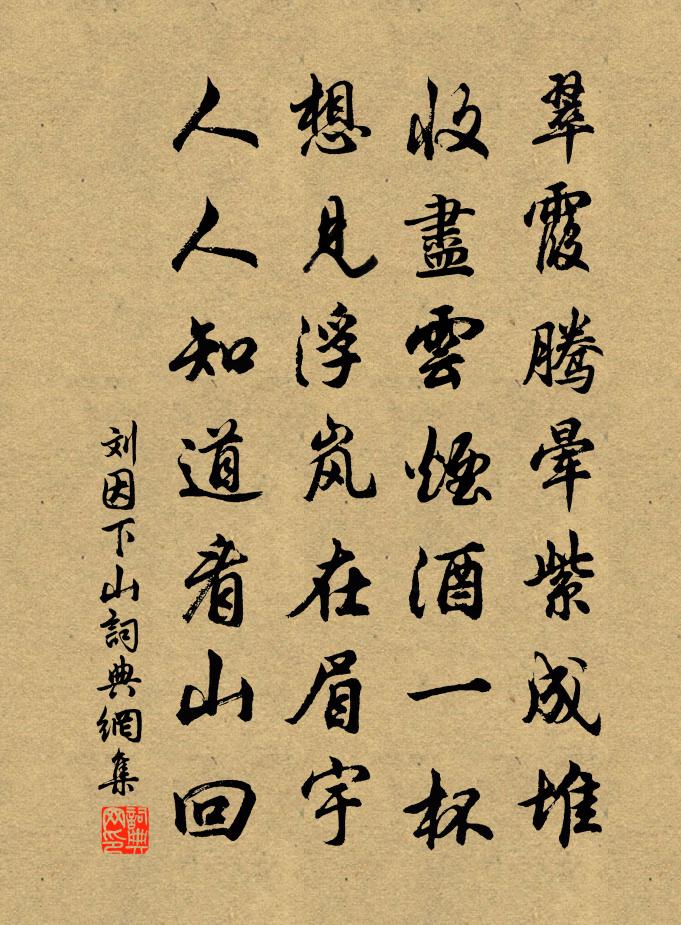 翠霞騰暈紫成堆
收盡雲煙酒一杯
想見浮岚在眉宇
人人知道看山回
刘因下山詞典網集
詞典网印